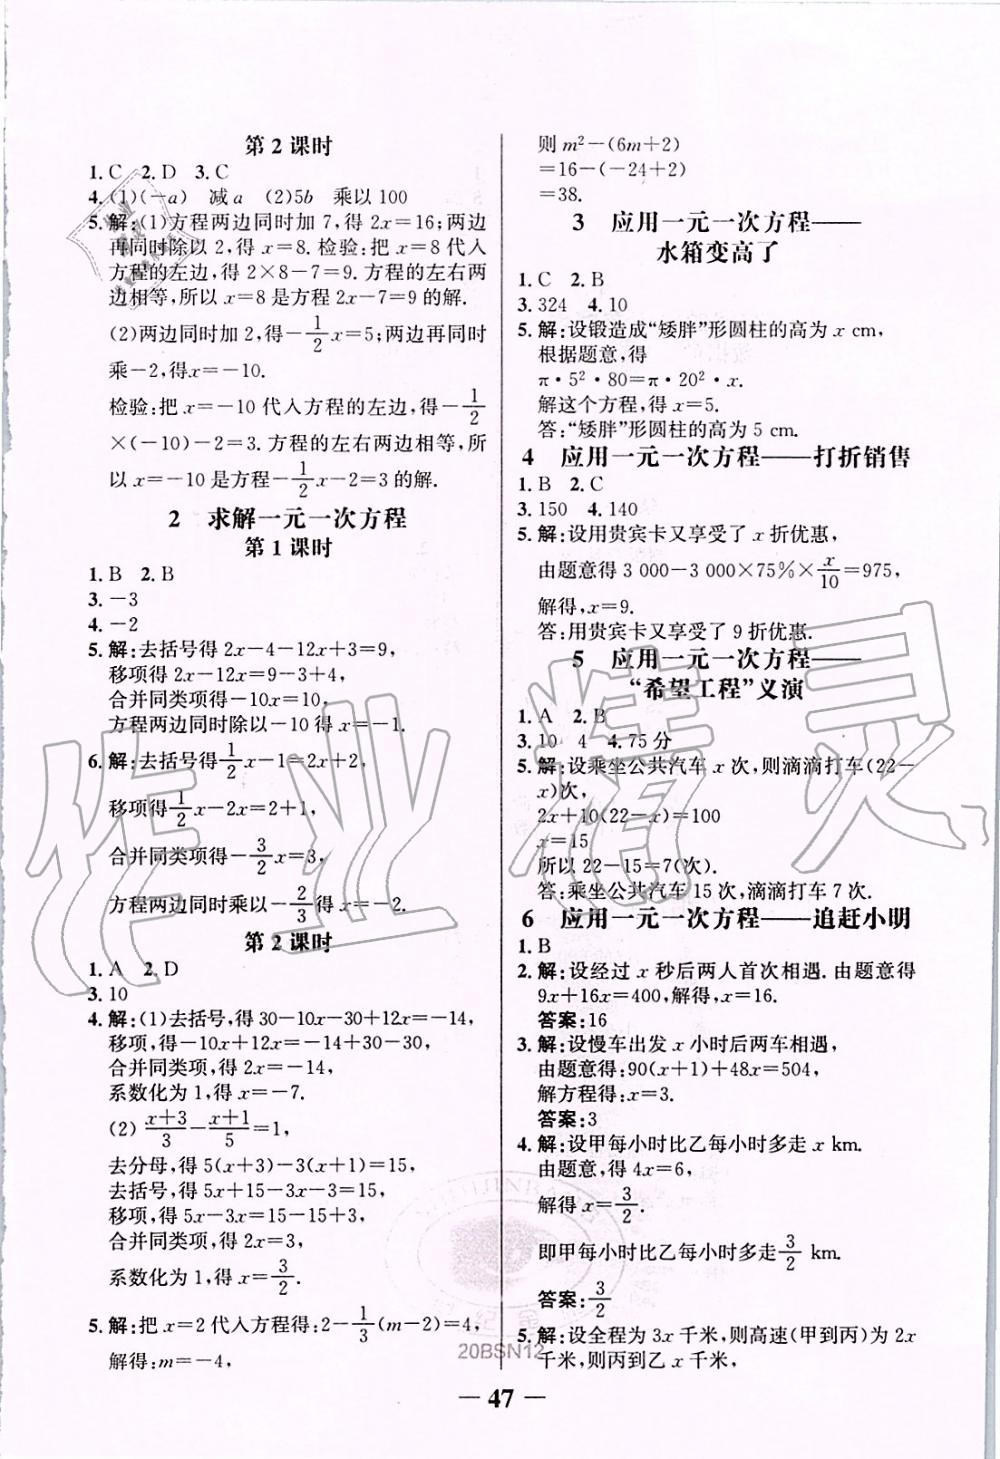 第2课时
1. C 2. D 3. C
4. (1)(-a) 减 a (2)5b 乘以100
5. 解:(1)方程两边同时加 7,得 2x=16;两边
再同时除以 2,得 x=8. 检验:把 x=8 代入
方程的左边,得 2×8-7=9. 方程的左右两
边相等,所以 x=8 是方程 2x-7=9 的解.
(2)两边同时加 2,得-1/2x=5;两边再同时
乘-2,得x=-10.
检验:把 x=-10 代入方程的左边,得-1/2
×(-10)-2=3. 方程的左右两边相等,所
以 x=-10 是方程-1/2x-2=3 的解.
2 求解一元一次方程
第1课时
1. B 2. B
3. -3
4. -2
5. 解:去括号得 2x-4-12x+3=9,
移项得 2x-12x=9-3+4,
合并同类项得-10x=10,
方程两边同时除以-10 得 x=-1.
6. 解:去括号得1/2x-1=2x+2,
移项得1/2x-2x=2+1,
合并同类项得-3/2x=3,
方程两边同时乘以-2/3得 x=-2.
第2课时
1. A 2. D
3. 10
4. 解:(1)去括号,得 30-10x-30+12x=-14,
移项,得-10x+12x=-14+30-30,
合并同类项,得 2x=-14,
系数化为 1,得 x=-7.
(2) (x+3)/3-(x+1)/5=1,
去分母,得 5(x+3)-3(x+1)=15,
去括号,得 5x+15-3x-3=15,
移项,得 5x-3x=15-15+3,
合并同类项,得 2x=3,
系数化为 1,得 x=3/2.
5. 解:把 x=2 代入方程得:2-1/3(m-2)=4,
解得:m=-4,
则 m²-(6m+2)
=16-(-24+2)
=38.
3 应用一元一次方程——
水箱变高了
1. C 2. B
3. 324 4. 10
5. 解:设锻造成“矮胖”形圆柱的高为 x cm,
根据题意,得
π·5²·80=π·20²·x.
解这个方程,得 x=5.
答:“矮胖”形圆柱的高为 5 cm.
4 应用一元一次方程——打折销售
1. B 2. C
3. 150 4. 140
5. 解:设用贵宾卡又享受了 x 折优惠,
由题意得 3 000-3 000×75%×x/10=975,
解得,x=9.
答:用贵宾卡又享受了 9 折优惠.
5 应用一元一次方程——
“希望工程”义演
1. A 2. B
3. 10 4 4. 75分
5. 解:设乘坐公共汽车 x 次,则滴滴打车(22-
x)次,
2x+10(22-x)=100
x=15
所以 22-15=7(次).
答:乘坐公共汽车 15 次,滴滴打车 7 次.
6 应用一元一次方程——追赶小明
1. B
2. 解:设经过 x 秒后两人首次相遇. 由题意得
9x+16x=400,解得,x=16.
答案:16
3. 解:设慢车出发 x 小时后两车相遇,
由题意得:90(x+1)+48x=504,
解方程得:x=3.
答案:3
4. 解:设甲每小时比乙每小时多走 x km.
由题意,得 4x=6,
解得 x=3/2.
即甲每小时比乙每小时多走3/2 km.
答案:3/2
5. 解:设全程为 3x 千米,则高速(甲到丙)为 2x
千米,则丙到乙 x 千米,
20BSN12
— 47 —
作业精灵